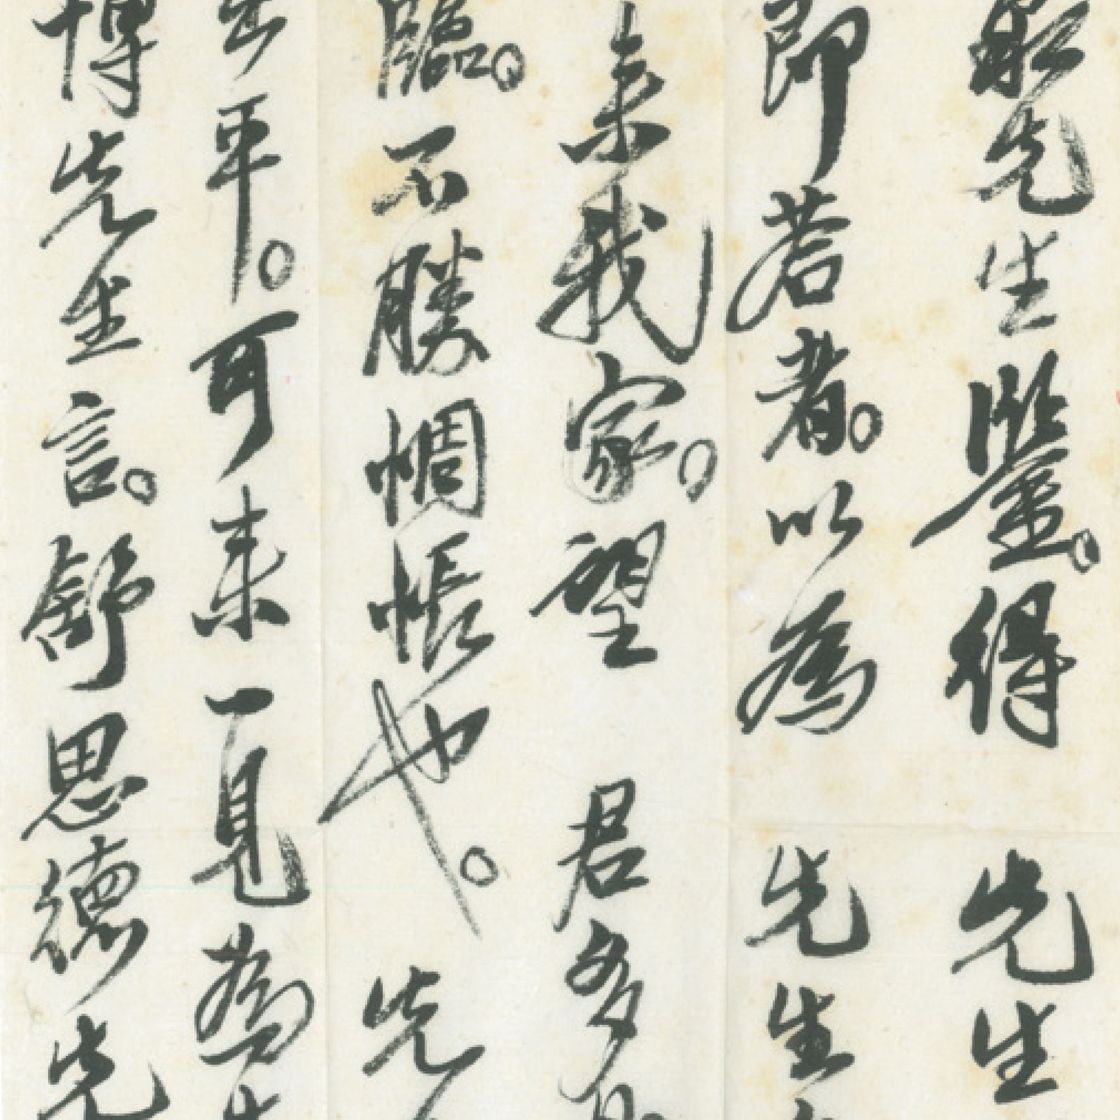 先生鑒。得先生
即若者。以為先生
未我家。望君多
臨。不勝惆悵也。先
平。可未一見為
博先生言。舒思德先